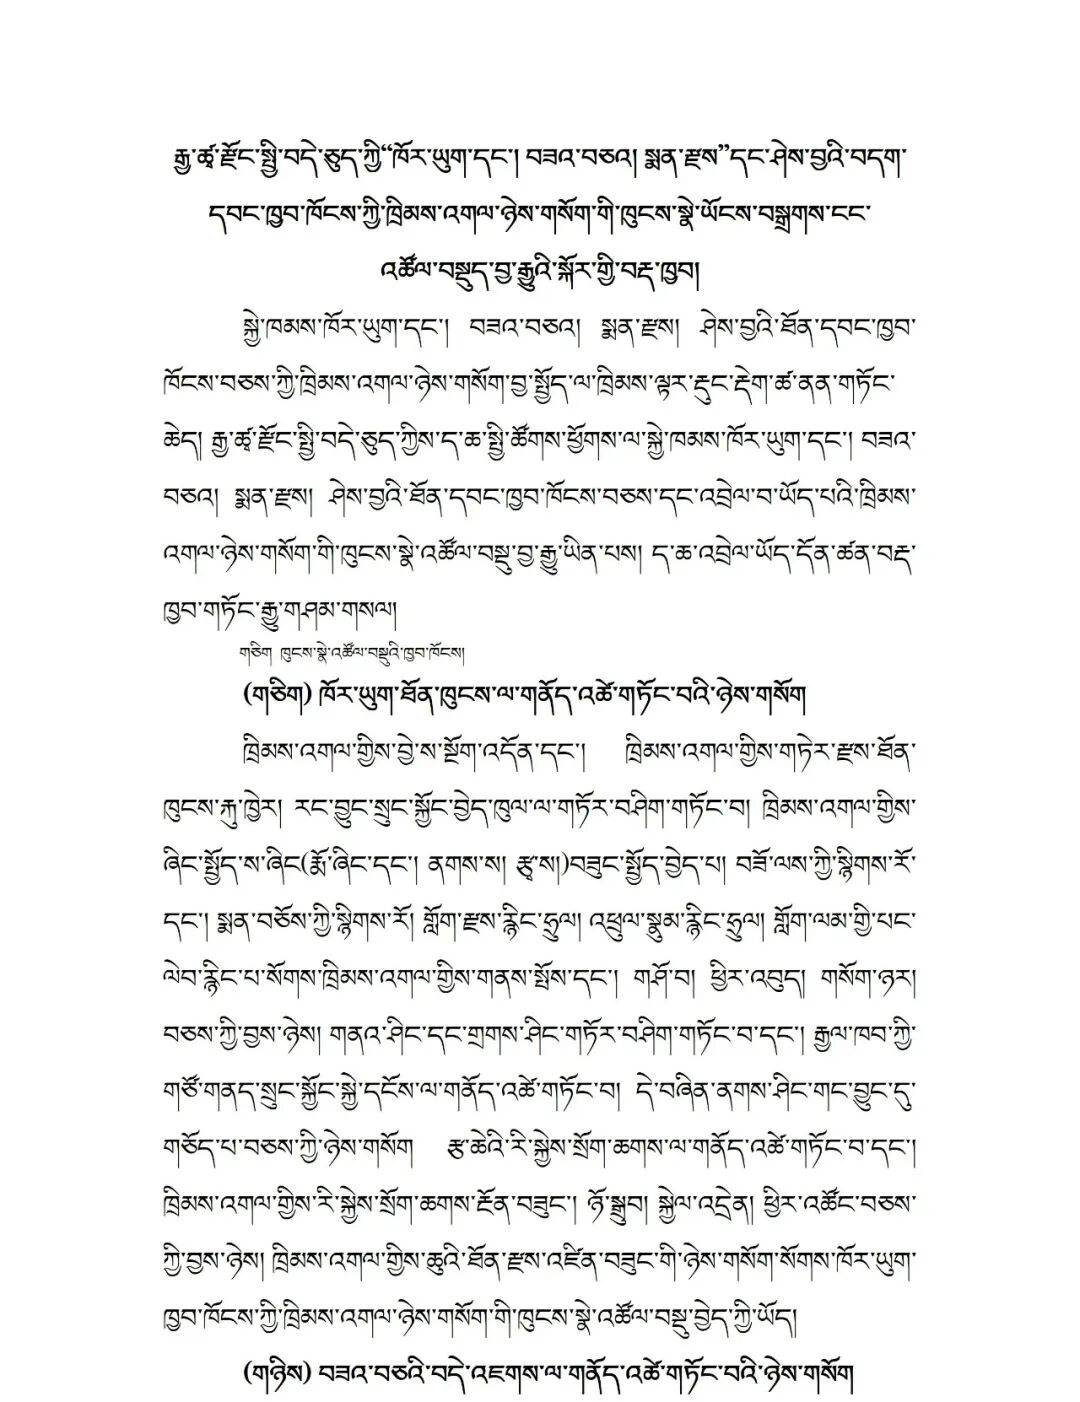 རྒྱ་ཚྭ་རྫོང་སྤྱི་བདེ་ཅུད་ཀྱི“ཁོར་ཡུག་དང་། བཟའ་བཅའ། སྨན་རྫས”དང་ཤེས་བྱའི་བདག་
དབང་ཁྱབ་ཁོངས་ཀྱི་ཁྲིམས་འགལ་ཉེས་གསོག་གི་ཁུངས་སྣེ་ཡོངས་བསྒྲགས་ངང་
འཚོལ་བསྡུད་བྱ་རྒྱུའི་སྐོར་གྱི་བརྡ་ཁྱབ།
སྐྱེ་ཁམས་ཁོར་ཡུག་དང་། བཟའ་བཅའ། སྨན་རྫས། ཤེས་བྱའི་ཐོན་དབང་ཁྱབ་
ཁོངས་བཅས་ཀྱི་ཁྲིམས་འགལ་ཉེས་གསོག་བྱ་སྤྱོད་ལ་ཁྲིམས་ལྟར་རྡུང་རྡེག་ཚ་ནན་གཏོང་
ཆེད། རྒྱ་ཚྭ་རྫོང་སྤྱི་བདེ་ཅུད་ཀྱིས་ད་ཆ་སྤྱི་ཚོགས་ཕྱོགས་ལ་སྐྱེ་ཁམས་ཁོར་ཡུག་དང་། བཟའ་
བཅའ། སྨན་རྫས། ཤེས་བྱའི་ཐོན་དབང་ཁྱབ་ཁོངས་བཅས་དང་འབྲེལ་བ་ཡོད་པའི་ཁྲིམས་
འགལ་ཉེས་གསོག་གི་ཁུངས་སྣེ་འཚོལ་བསྡུ་བྱ་རྒྱུ་ཡིན་པས། ད་ཆ་འབྲེལ་ཡོད་དོན་ཚན་བརྡ་
ཁྱབ་གཏོང་རྒྱུ་གཤམ་གསལ།
གཅིག ཁུངས་སྣེ་འཚོལ་བསྡུའི་ཁྱབ་ཁོངས།
(གཅིག) ཁོར་ཡུག་ཐོན་ཁུངས་ལ་གནོད་འཚེ་གཏོང་བའི་ཉེས་གསོག
ཁྲིམས་འགལ་གྱིས་བྱེ་ས་སྔོག་འདོན་དང་། ཁྲིམས་འགལ་གྱིས་གཏེར་རྫས་ཐོན་
ཁུངས་རྐུ་ཁྱེར། རང་བྱུང་སྲུང་སྐྱོང་བྱེད་ཁུལ་ལ་གཏོར་བཤིག་གཏོང་བ། ཁྲིམས་འགལ་གྱིས་
ཞིང་སྤྱོད་ས་ཞིང(རྨོ་ཞིང་དང་། ནགས་ས། རྩྭ་ས།)བཟུང་སྤྱོད་བྱེད་པ། བཟོ་ལས་ཀྱི་སྙིགས་རོ་
དང་། སྨན་བཅོས་ཀྱི་སྙིགས་རོ། གློག་རྫས་རྙིང་ཧྲུལ། འཕྲུལ་སྣུམ་རྙིང་ཧྲུལ། གློག་ལམ་གྱི་པང་
ལེབ་རྙིང་པ་སོགས་ཁྲིམས་འགལ་གྱིས་གནས་སྤོས་དང་། གཤོ་བ། ཕྱིར་འབུད། གསོག་ཉར།
བཅས་ཀྱི་བྱས་ཉེས། གནའ་ཤིང་དང་གྲགས་ཤིང་གཏོར་བཤིག་གཏོང་བ་དང་། རྒྱལ་ཁབ་ཀྱི་
གཙོ་གནད་སྲུང་སྐྱོང་སྐྱེ་དངོས་ལ་གནོད་འཚེ་གཏོང་བ། དེ་བཞིན་ནགས་ཤིང་གང་བྱུང་དུ་
གཅོད་པ་བཅས་ཀྱི་ཉེས་གསོག རྩ་ཆེའི་རི་སྐྱེས་སྲོག་ཆགས་ལ་གནོད་འཚེ་གཏོང་བ་དང་།
ཁྲིམས་འགལ་གྱིས་རི་སྐྱེས་སྲོག་ཆགས་རྔོན་བཟུང་། ཉོ་སྒྲུབ། སྐྱེལ་འདྲེན། ཕྱིར་འཚོང་བཅས་
ཀྱི་བྱས་ཉེས། ཁྲིམས་འགལ་གྱིས་ཆུའི་ཐོན་རྫས་འཛིན་བཟུང་གི་ཉེས་གསོག་སོགས་ཁོར་ཡུག་
ཁྱབ་ཁོངས་ཀྱི་ཁྲིམས་འགལ་ཉེས་གསོག་གི་ཁུངས་སྣེ་འཚོལ་བསྡུ་བྱེད་ཀྱི་ཡོད།
(གཉིས) བཟའ་བཅའི་བདེ་འཇགས་ལ་གནོད་འཚེ་གཏོང་བའི་ཉེས་གསོག